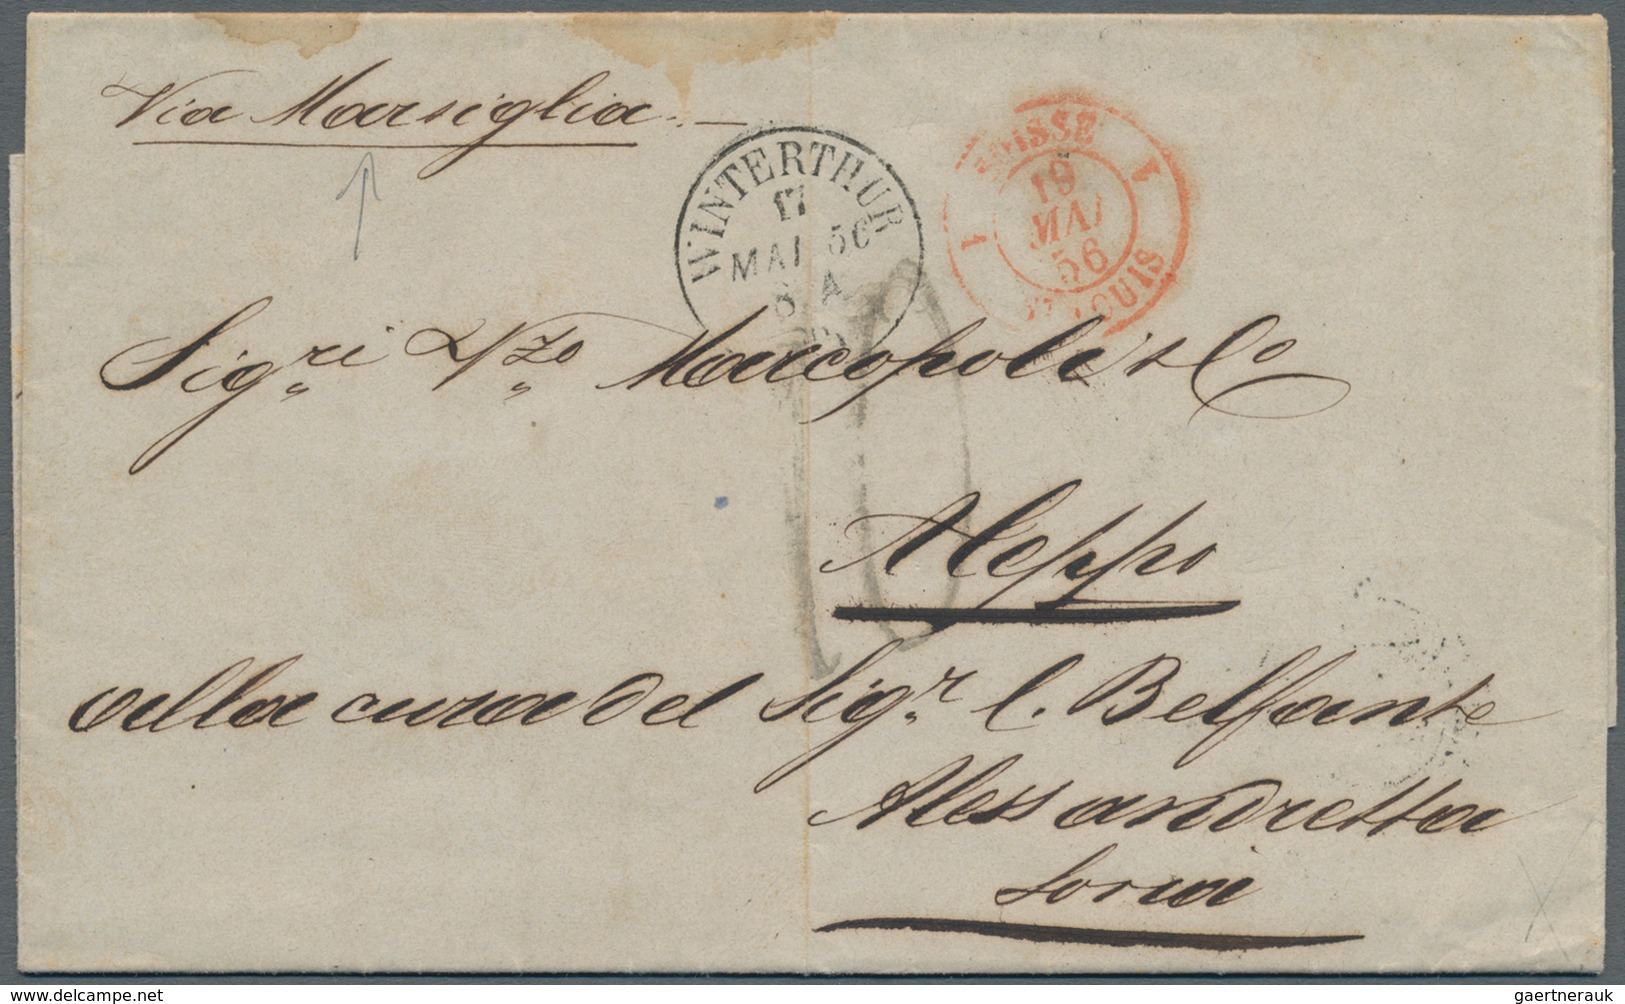 Via Marsiglia
WINTERTHUR
17
MAI 56
8 A
1 SUISSE 1
19
MAI
56
ST LOUIS
10
Sigri Vzo Marcopoli & Co
Aleppo
alla cura del Sigr C. Belfante
Alessandretta
Soria
gaertnerauk @ delcampe.net